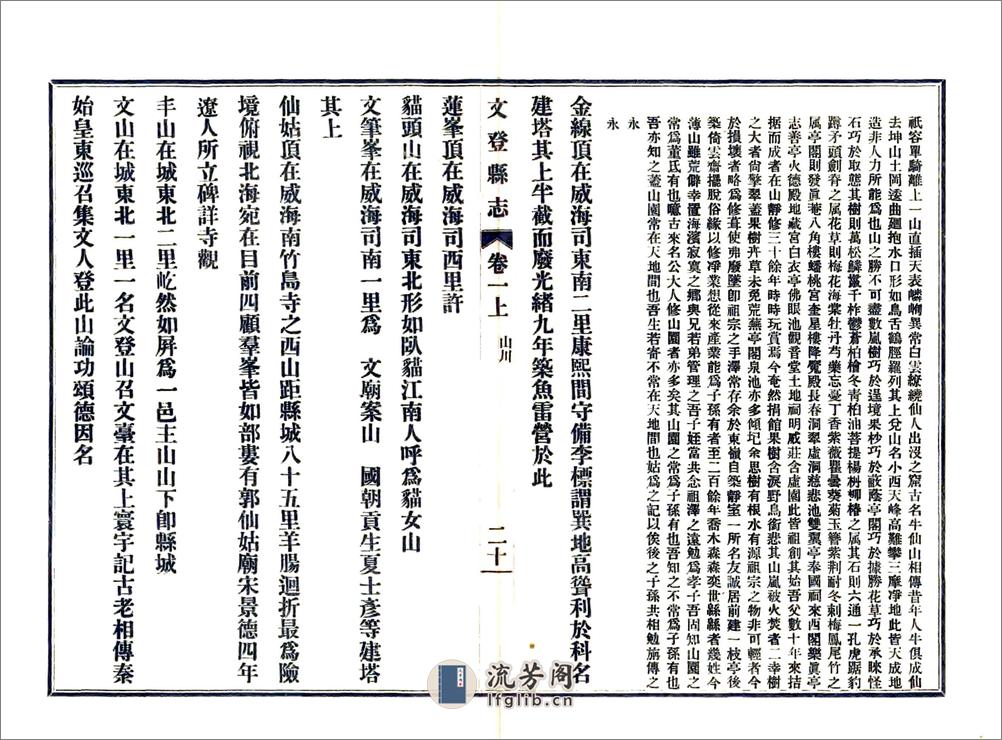 祇容單騎離上一山直插天表嶙峋異常白雲繚繞仙人出沒之窟古名牛仙山相傳昔年人牛俱成仙
去坤山土岡逶曲廻抱水口形如鳥舌鶴脛羅列其上兌山名小西天峰高難攀三摩凈地此皆天成地
造非人力所能為也山之勝不可盡數嵐樹巧於逞境果杪巧於蔽蔭亭閣巧於據勝花草巧於承睞怪
石巧於取態其樹則萬松鱗叢千柞鬱蒼柏檜冬青柏油菩提楊柳椿之屬其石則六通一孔虎踞豹
蹲矛頭劍脊之屬花草則梅花海棠牡丹芍藥忘憂丁香紫薇瞿曇葵菊玉簪紫荆耐冬刺梅鳳尾竹之
屬亭閣則發眞菴八角樓蟠桃宮奎星樓降鸞殿長春洞翠虛洞慈悲池雙翼亭奉國祠來西閣樂眞亭
志善亭火德殿地藏宮白衣亭佛眼池觀音堂土地祠明威莊含虛園此皆祖創其始吾父數十年來拮
据而成者在山靜修三十餘年時時玩賞焉今奄然捐館果樹含淚野鳥銜悲其山嵐被火焚者二幸樹
之大者尙擎翠蓋果樹卉草未免荒蕪亭閣泉池亦多傾圮余思樹有根水有源祖宗之物非可輕者今
於損壞者略為修葺使弗廢墜卽祖宗之手澤常存余於東嶺自築靜室一所名友誠居前建一枝亭後
築倚雲齋擺脫俗緣以修凈業想從來產業能為子孫有者至二百餘年喬木森森奕世緜緜者幾姓今
薄山雖荒僻幸置海濱寂寞之鄉與兄若弟管理之吾子姪當共念祖澤之遠勉為孝子吾固知山園之
常為董氏有也噫古來名公大人修山園者亦多矣其山園之常為子孫有也吾知之不常為子孫有也
吾亦知之蓋山園常在天地間也吾生若寄不常在天地間也姑為之記以俟後之子孫共相勉旃傳之
永
永
金線頂在威海司東南二里康熙間守備李標謂巽地高聳利於科名
建塔其上半截而廢光緒九年築魚雷營於此
文登縣志
卷一上
山川
二十
蓮峯頂在威海司西里許
貓頭山在威海司東北形如臥貓江南人呼為貓女山
文筆峯在威海司南一里為 文廟案山 國朝貢生夏士彥等建塔
其上
仙姑頂在威海南竹島寺之西山距縣城八十五里羊腸迴折最為險
境俯視北海宛在目前四顧羣峯皆如部婁有郭仙姑廟宋景德四年
遼人所立碑詳寺觀
丰山在城東北二里屹然如屏為一邑主山山下卽縣城
文山在城東北一里一名文登山召文臺在其上寰宇記古老相傳秦
始皇東巡召集文人登此山論功頌德因名
流芳阁
lfglib.cn